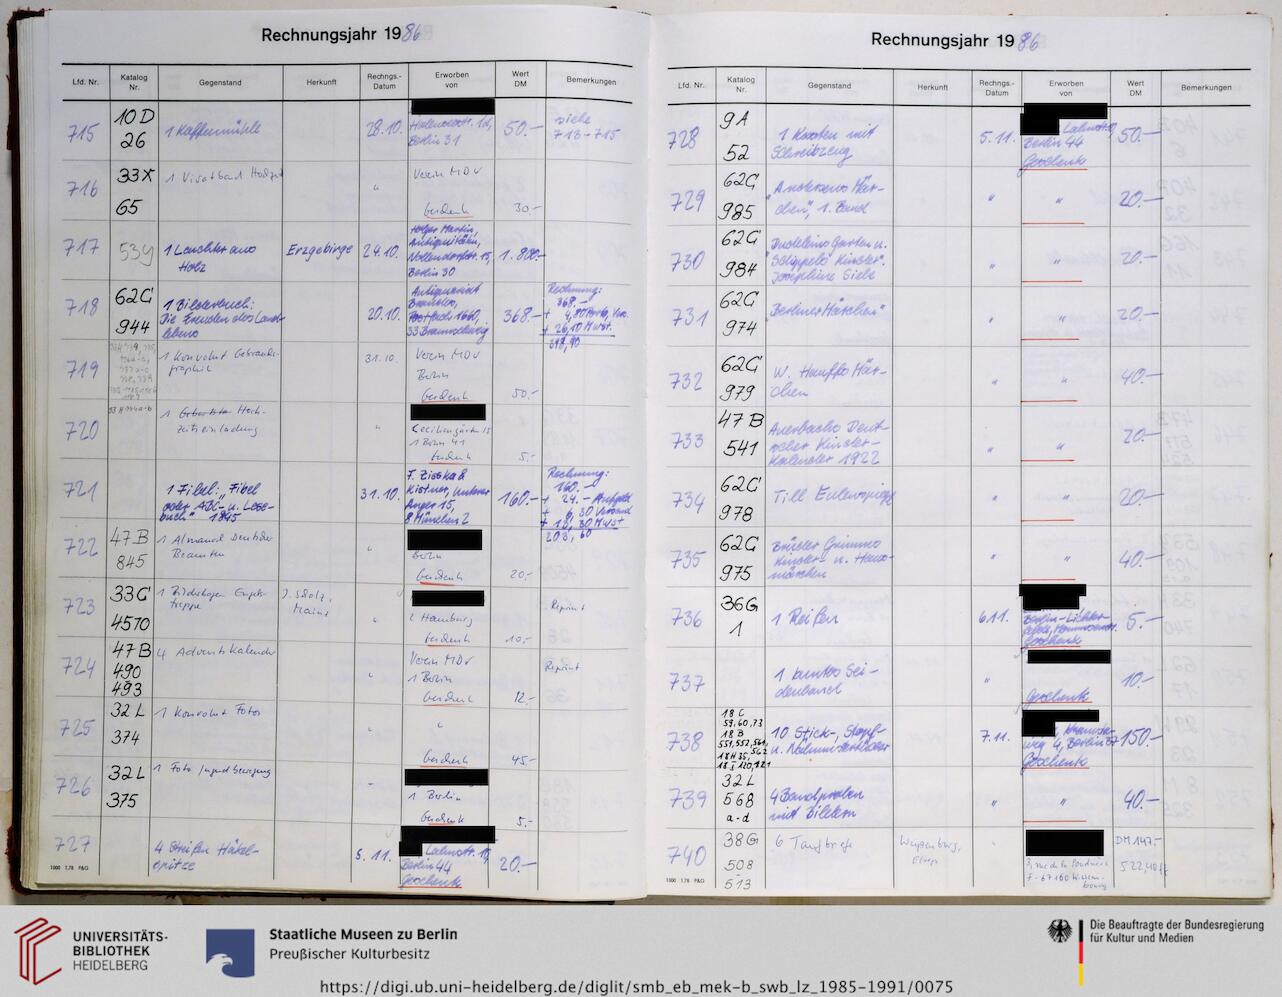 Rechnungsjahr 1986
Lfd. Nr. Katalog Nr. Gegenstand Herkunft Rechngs.-Datum Erworben von Wert DM Bemerkungen
715 10 D 26 1 Kaffeemühle 28.10. Berlin 31 50.- siehe 713-715
716 33 X 65 1 " Verein MDV Geschenk 30.-
717 53y 1 Leuchter aus Holz Erzgebirge 24.10. Holger Martin, Antiquitäten, Nollendorfstr. 15, Berlin 30 1.800.-
718 62G 944 1 Bilderbuch: Die Freuden des Landlebens 20.10. Antiquariat Postfach 1660, 33 Braunschweig 368.- Rechnung: 368.- + 4,80 Porto, Ver. + 26,10 Mwst. 398,90
719 1 Konvolut Gebrauchsgraphik 31.10. Verein MDV Berlin Geschenk 50.-
720 33 H 1 Hochzeitseinladung " 1 Berlin 41 Geschenk 5.-
721 1 Fibel: "Fibel oder ABC- u. Lesebuch" 1845 31.10. F. Zisska & Kistner, Unterer Anger 15, 8 München 2 160.- Rechnung: 160.- + 24.- Aufgeld + 6,30 Versand + 13,30 Mwst 203,60
722 47 B 845 1 Almanach Deutscher Beamten " Berlin Geschenk 20.-
723 33G 4570 1 Bilderbogen J. Scholz, Mainz " 2 Hamburg Geschenk 10.- Reprint
724 47B 490 493 4 Adventskalender " Verein MDV 1 Berlin Geschenk 12.- Reprint
725 32 L 374 1 Konvolut Fotos " " Geschenk 45.-
726 32L 375 1 Foto Jugendbewegung - 1 Berlin Geschenk 5.-
727 4 Streifen Häkelspitze 5.11. Berlin 44 Geschenk 20.-
1000 1.78 P&G
Rechnungsjahr 1986
Lfd. Nr. Katalog Nr. Gegenstand Herkunft Rechngs.-Datum Erworben von Wert DM Bemerkungen
728 9A 52 1 Kasten mit Schreibzeug 5.11. Berlin 44 Geschenk 50.-
729 62G 985 "Andersens Märchen", 1. Band " " 20.-
730 62G 984 Josephine Siebe " " 20.-
731 62G 974 "Berliner Märchen" " " 20.-
732 62G 979 W. Hauffs Märchen " " 40.-
733 47 B 541 Auerbachs Deutscher Kinder-Kalender 1922 " " 20.-
734 62G 978 Till Eulenspiegel " " 20.-
735 62G 975 Brüder Grimms Kinder- u. Hausmärchen " " 40.-
736 36G 1 1 Reifen 6.11. Berlin-Lichterfelde, Geschenk 5.-
737 1 buntes Seidenband " Geschenk 10.-
738 18 C 59,60,73 18 B 551,552,561,562 18 H 35, 18 I 120,121 10 Stick-, Stopf- u. Nähmustertücher 7.11. weg 4, Berlin 37 Geschenk 150.-
739 32L 568 a-d 4 Bandproben mit Bildern " " 40.-
740 38G 508 513 6 Taufbriefe Weissenburg, Elsass " F-67160 DM 147.-
1000 1.78 P&G
UNIVERSITÄTS-
BIBLIOTHEK
HEIDELBERG
Staatliche Museen zu Berlin
Preußischer Kulturbesitz
Die Beauftragte der Bundesregierung
für Kultur und Medien
https://digi.ub.uni-heidelberg.de/diglit/smb_eb_mek-b_swb_lz_1985-1991/0075